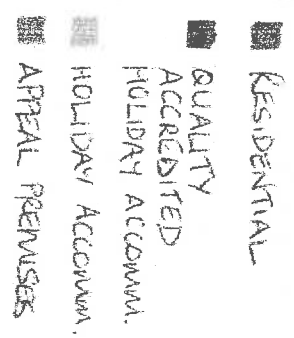 RESIDENTIAL
QUALITY
ACCREDITED
HOLIDAY ACCOMM.
HOLIDAY ACCOMM.
APPEAL PREMISES